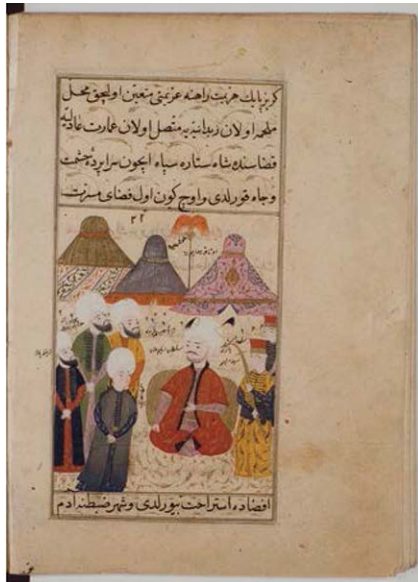 كريزپايك هزيمت راهنه عزيمتى متعين اوليجق محل
ملحمه اولان زيدانيه يه متصل اولان عمارت عادليه
فضاسنده شاه ستاره سپاه ايچون سراپردهٔ حشمت
وجاه قورلدى واوچ كون اول فضاى مسرت
افضاده استراحت بيورلدى وشهر ضبطنه ادم